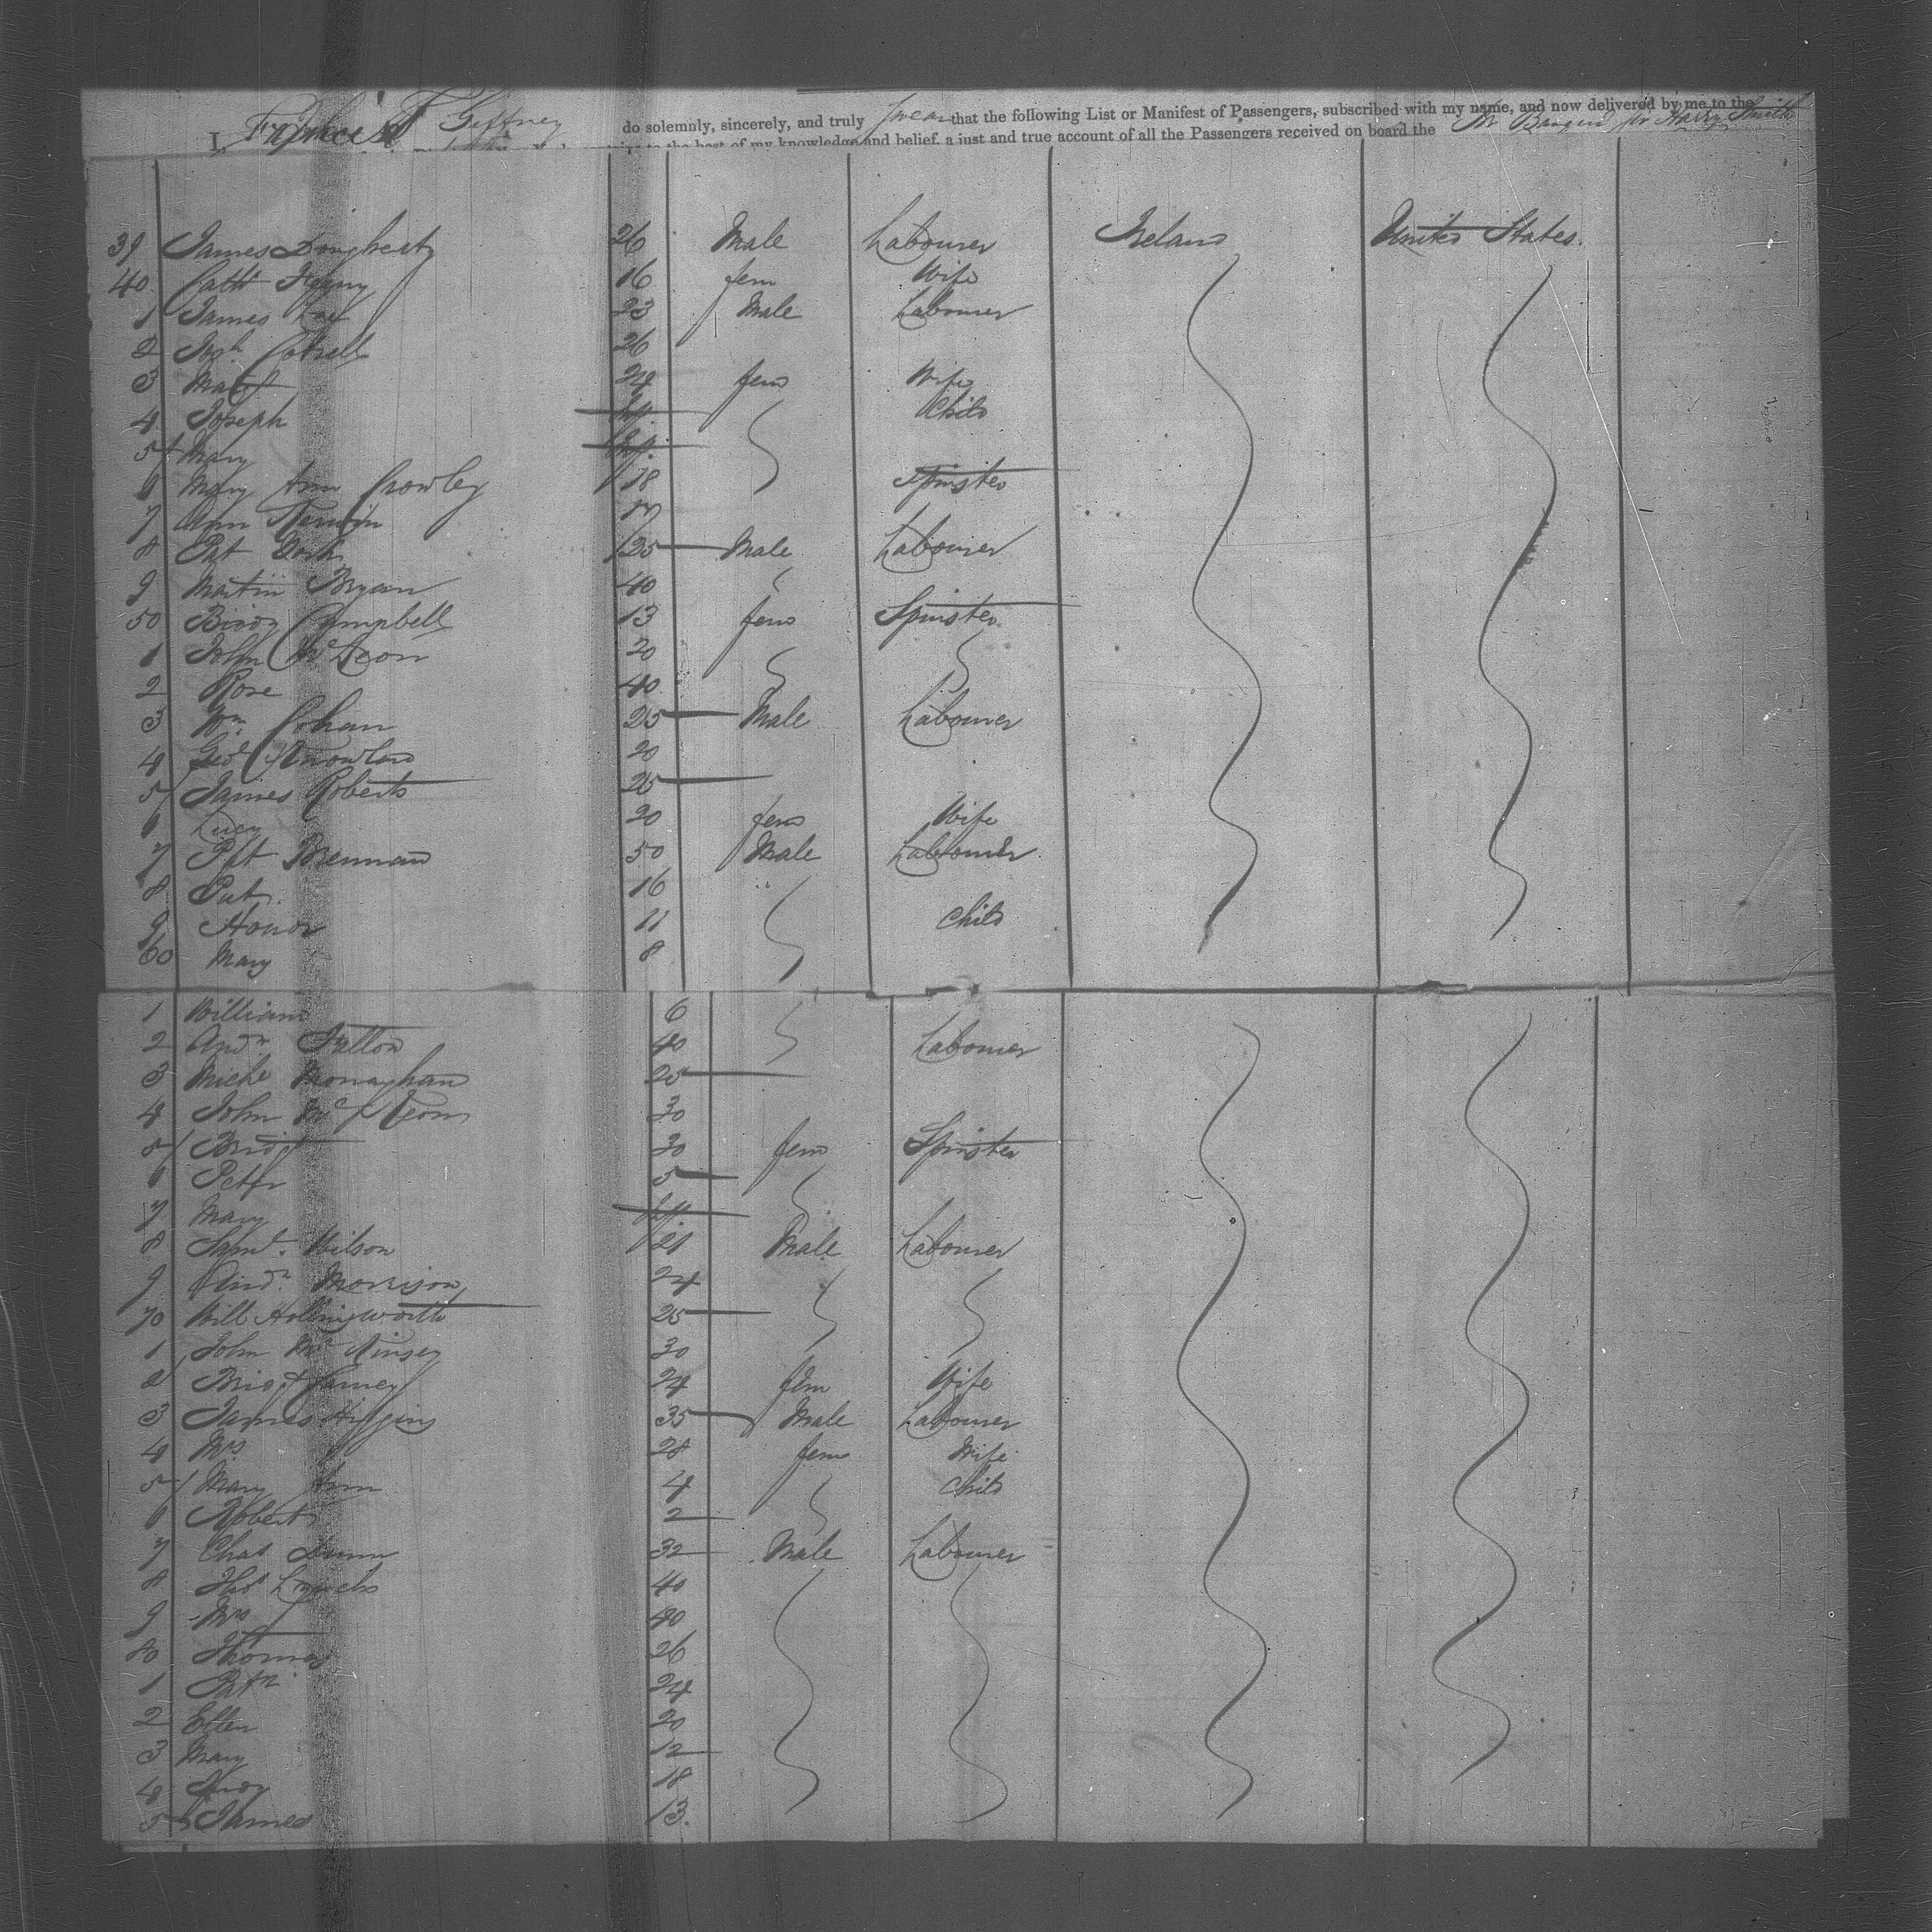 I, Geffney do solemnly, sincerely, and truly swear that the following List or Manifest of Passengers, subscribed with my name, and now delivered by me to the
to the best of my knowledge and belief, a just and true account of all the Passengers received on board the
39 James Dougherty 26 Male Labourer Ireland United States.
40 Cath 16 fem Wife
1 James 23 Male Labourer
2 Josh Cotrell 26
3 Mary 24 fem Wife
4 Joseph Child
5 Mary
6 Mary Ann Crowley 18 Spinster
7 Ann
8 Pat 25 Male Labourer
9 Martin Bryan 40
50 Biddy Campbell 13 fem Spinster
1 John 20
2 Rose 40
3 Wm Cohan 25 Male Labourer
4 Geo Knowles 20
5 James Roberts 25
6 Lucy 20 fem Wife
7 Pat Brennan 50 Male Labourer
8 Pat 16
9 Honor 11 Child
60 Mary 8
1 William 6
2 Andw Fallon 40 Labourer
3 Michl Monaghan 25
4 John 30
5 Bridt 30 fem Spinster
6 Peter 5
7 Mary
8 Saml. Wilson 21 Male Labourer
9 Andw Morrison 24
70 Will Hollingsworth 25
1 John McKinsey 30
2 Bridt 24 fem Wife
3 James Higgins 35 Male Labourer
4 Mrs 28 fem Wife
5 Mary Ann 4 Child
6 Robert 2
7 Chas Dunn 32 Male Labourer
8 40
9 Mrs 40
80 Thomas 26
1 Patk 24
2 Ellen 20
3 Mary 12
4 18
5 James 13